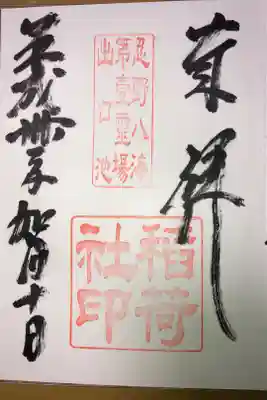 奉拝
忍野八海
第壹霊場
出口池
稲荷
社印
平成卅年 如月十日